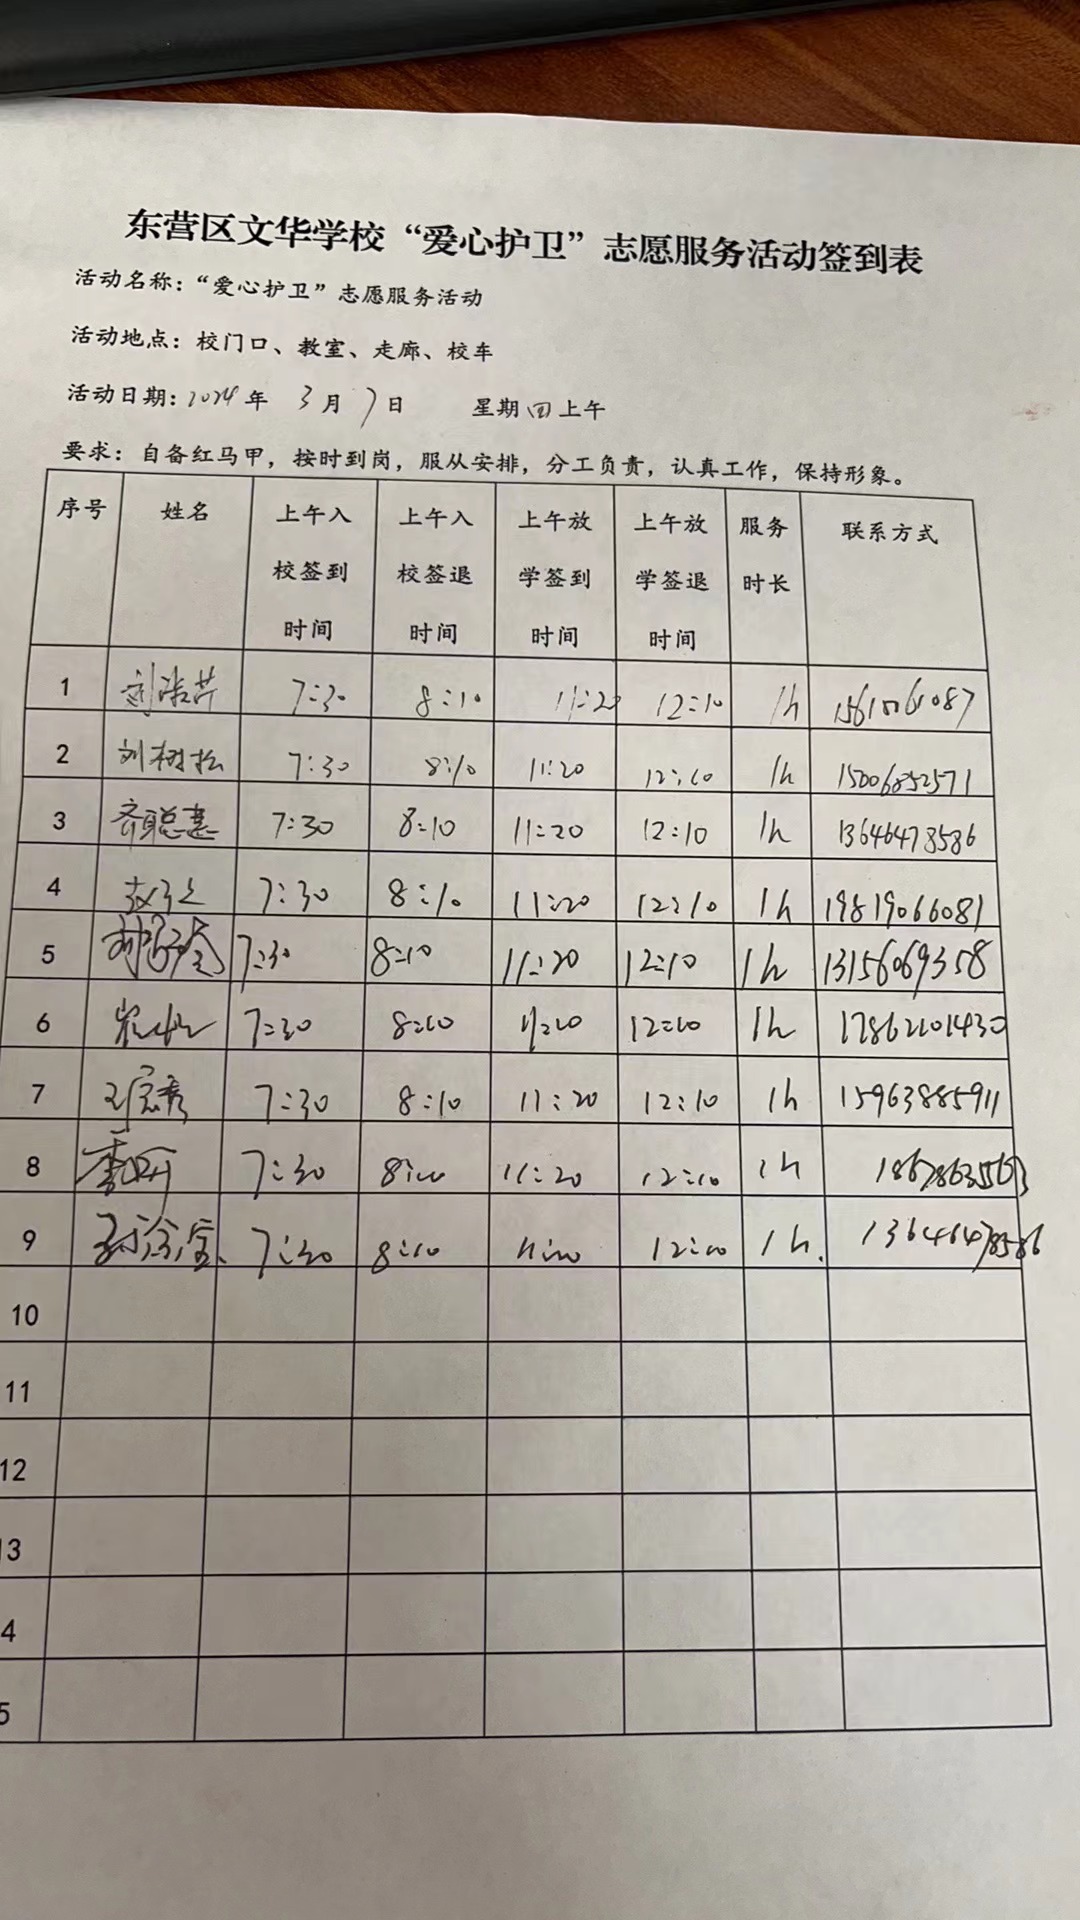 东营区文华学校“爱心护卫”志愿服务活动签到表
活动名称：“爱心护卫”志愿服务活动
活动地点：校门口、教室、走廊、校车
活动日期：2024年 3月 7日 星期四上午
要求：自备红马甲，按时到岗，服从安排，分工负责，认真工作，保持形象。
序号 姓名 上午入校签到时间 上午入校签退时间 上午放学签到时间 上午放学签退时间 服务时长 联系方式
1 7:30 8:10 11:20 12:10 1h
2 刘树松 7:30 8:10 11:20 12:10 1h 15006852571
3 齐聪慧 7:30 8:10 11:20 12:10 1h 13646478586
4 7:30 8:10 11:20 12:10 1h 19819066081
5 7:30 8:10 11:20 12:10 1h 13156069358
6 7:30 8:10 11:20 12:10 1h 17862101430
7 7:30 8:10 11:20 12:10 1h 15963885911
8 7:30 8:10 11:20 12:10 1h
9 7:30 8:10 11:20 12:10 1h. 13646478586
10
11
12
13
4
5